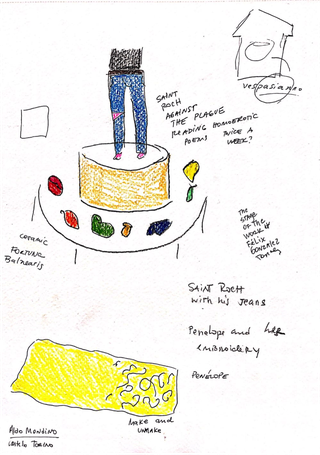 vespasiano
SAINT
ROCH
AGAINST
THE PLAGUE
READING HOMOEROTIC
POEMS TWICE A
WEEK?
THE
STAGE
OF THE
WORK OF
FELIX
GONZALEZ
TORRES
CERAMIC
FORTUNA
Balnearis
SAINT ROCH
with his Jeans
Penelope and her
embroidery
PENÉLOPE
make and
UNMAKE
Aldo Mondino
Torino